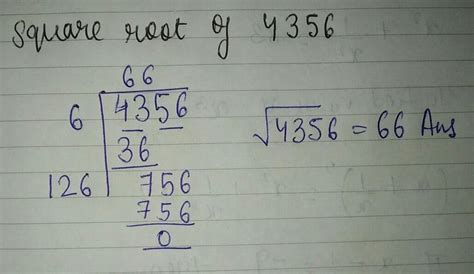 Square root of 4356
66
6 4356
36
126 756
756
0
√4356 = 66 Ans